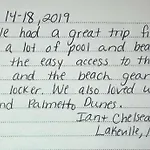 14-18, 2019
le had a great trip fi
a lot of pool and bea
the easy access to th
and the beach gear
locker. We also loved u
nd Palmetto Dunes.
Ian + Chelsea
Lakeville,